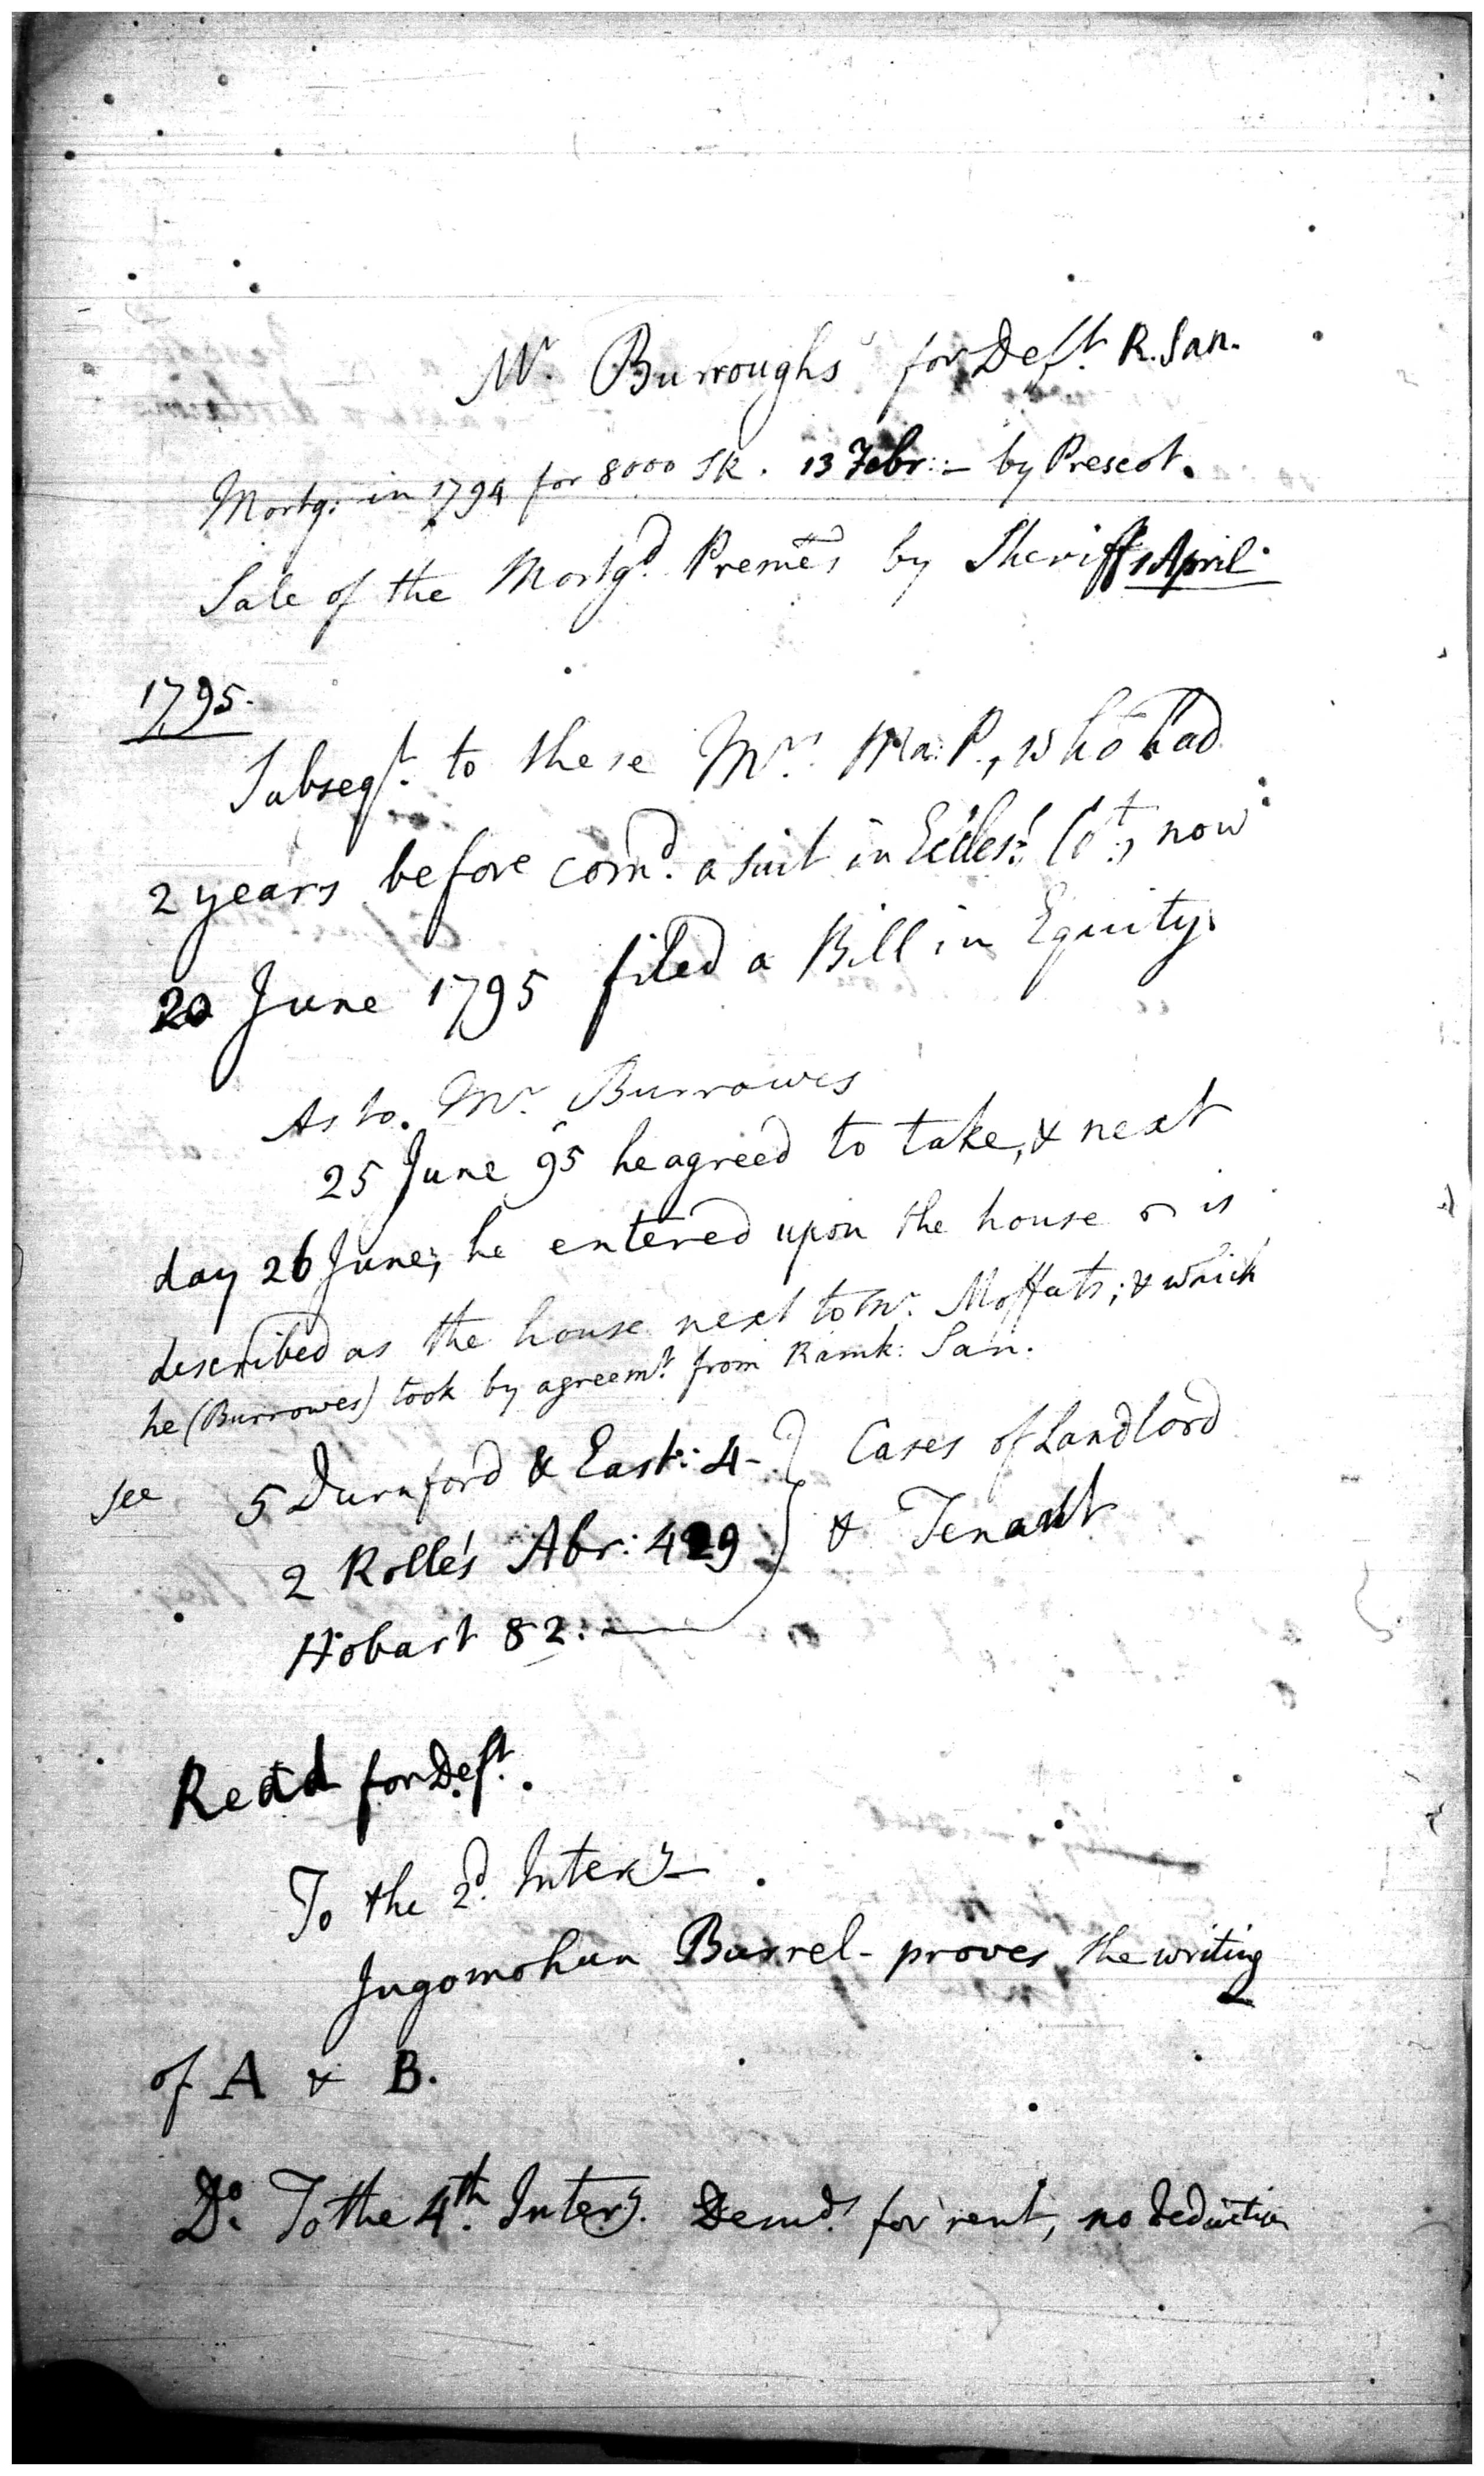 Mr. Burroughs for Deft. R. San.
Mortg: in 1794 for 8000 SR. 13 Febr:- by Prescot.
Sale of the Mortgd. Premes by Sheriff 1 April
1795.
Subseqt. to these Mrs. Ma: P., who had
2 years before comd. a suit in Eccles:l Ct:, now
20 June 1795 filed a Bill in Equity.
As to. Mr. Burrowes
25 June 95 he agreed to take, & next
day 26 June; he entered upon the house is
described as the house next to Mr. Moffats; & which
he (Burrowes) took by agreemt. from Ramk: San.
See 5 Durnford & East: 4- } Cases of Landlord
2 Rolle's Abr: 429 } & Tenant
Hobart 82:
Read for Deft.
To the 2d. Intery
Jugomohun Burrel - proves the writing
of A & B.
Do. To the 4th. Intery. Demds. for rent, no deduction